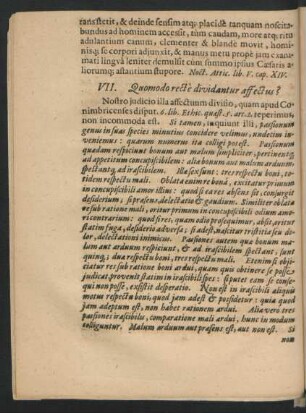 tans stetit, & deinde sensim atq; placidè tanquam noscita-
bundus ad hominem accessit, tum caudam, more atq; ritu
adulantium canum, clementer & blandè movit, homi-
nisq; se corpori adjunxit, & manus metu propè jam exani-
mati linguâ leniter demulsit cum summo ipsius Cæsaris a-
liorumq; astantium stupore. Noct. Attic. lib. V. cap. XIV.
VII. Quomodo rectè dividantur affectus?
Nostro judicio illa affectuum divisio, quam apud Co-
nimbricenses disput. 6. lib. Ethic. quæst. 1. art. 2. reperimus,
non incommoda est. Si tamen, inquiunt illi, passionum
genus in suas species minutius concidere velimus, undecim in-
venientur: quarum numerum ita colligi potest. Passionum
quædam respiciunt bonum aut malum simpliciter, pertinentq;
ad appetitum concupiscibilem: aliæ bonum aut malum arduum
spectant, ad irascibilem. Illæ sex sunt: tres respectu boni, to-
tidem respectu mali. Oblatâ enim re bonâ, excitatur primum
in concupiscibili amor illius: quod si eares absit à se, consurgit
desiderium; si præsens, delectatio & gaudium. Similiter oblatâ
re sub ratione mali, oritur primum in concupiscibili odium amo-
ri contrarium: quod si res, quam odio prosequimur, absit, oritur
statim fuga, desiderio adversa; si adest, nascitur tristitia seu do-
lor, delectationi inimicus. Passiones autem quæ bonum ma-
lum aut arduum respiciunt, & ad irascibilem spectant, sunt
quinq; duæ respectu boni, tres respectu mali. Etenim si obji-
ciatur res sub ratione boni ardui, quam quis obtinere se posse
judicat, provenit statim in irascibili spes: si putet eam se conse-
qui non posse, existit desperatio. Non est in irascibili aliquis
motus respectu boni, quod jam adest & possidetur: quia quod
jam adeptum est, non habet rationem ardui. Aliæ vero tres
passiones irascibilis, comparatione mali ardui, hunc in modum
colliguntur. Malum arduum aut præsens est, aut non est. Si
non